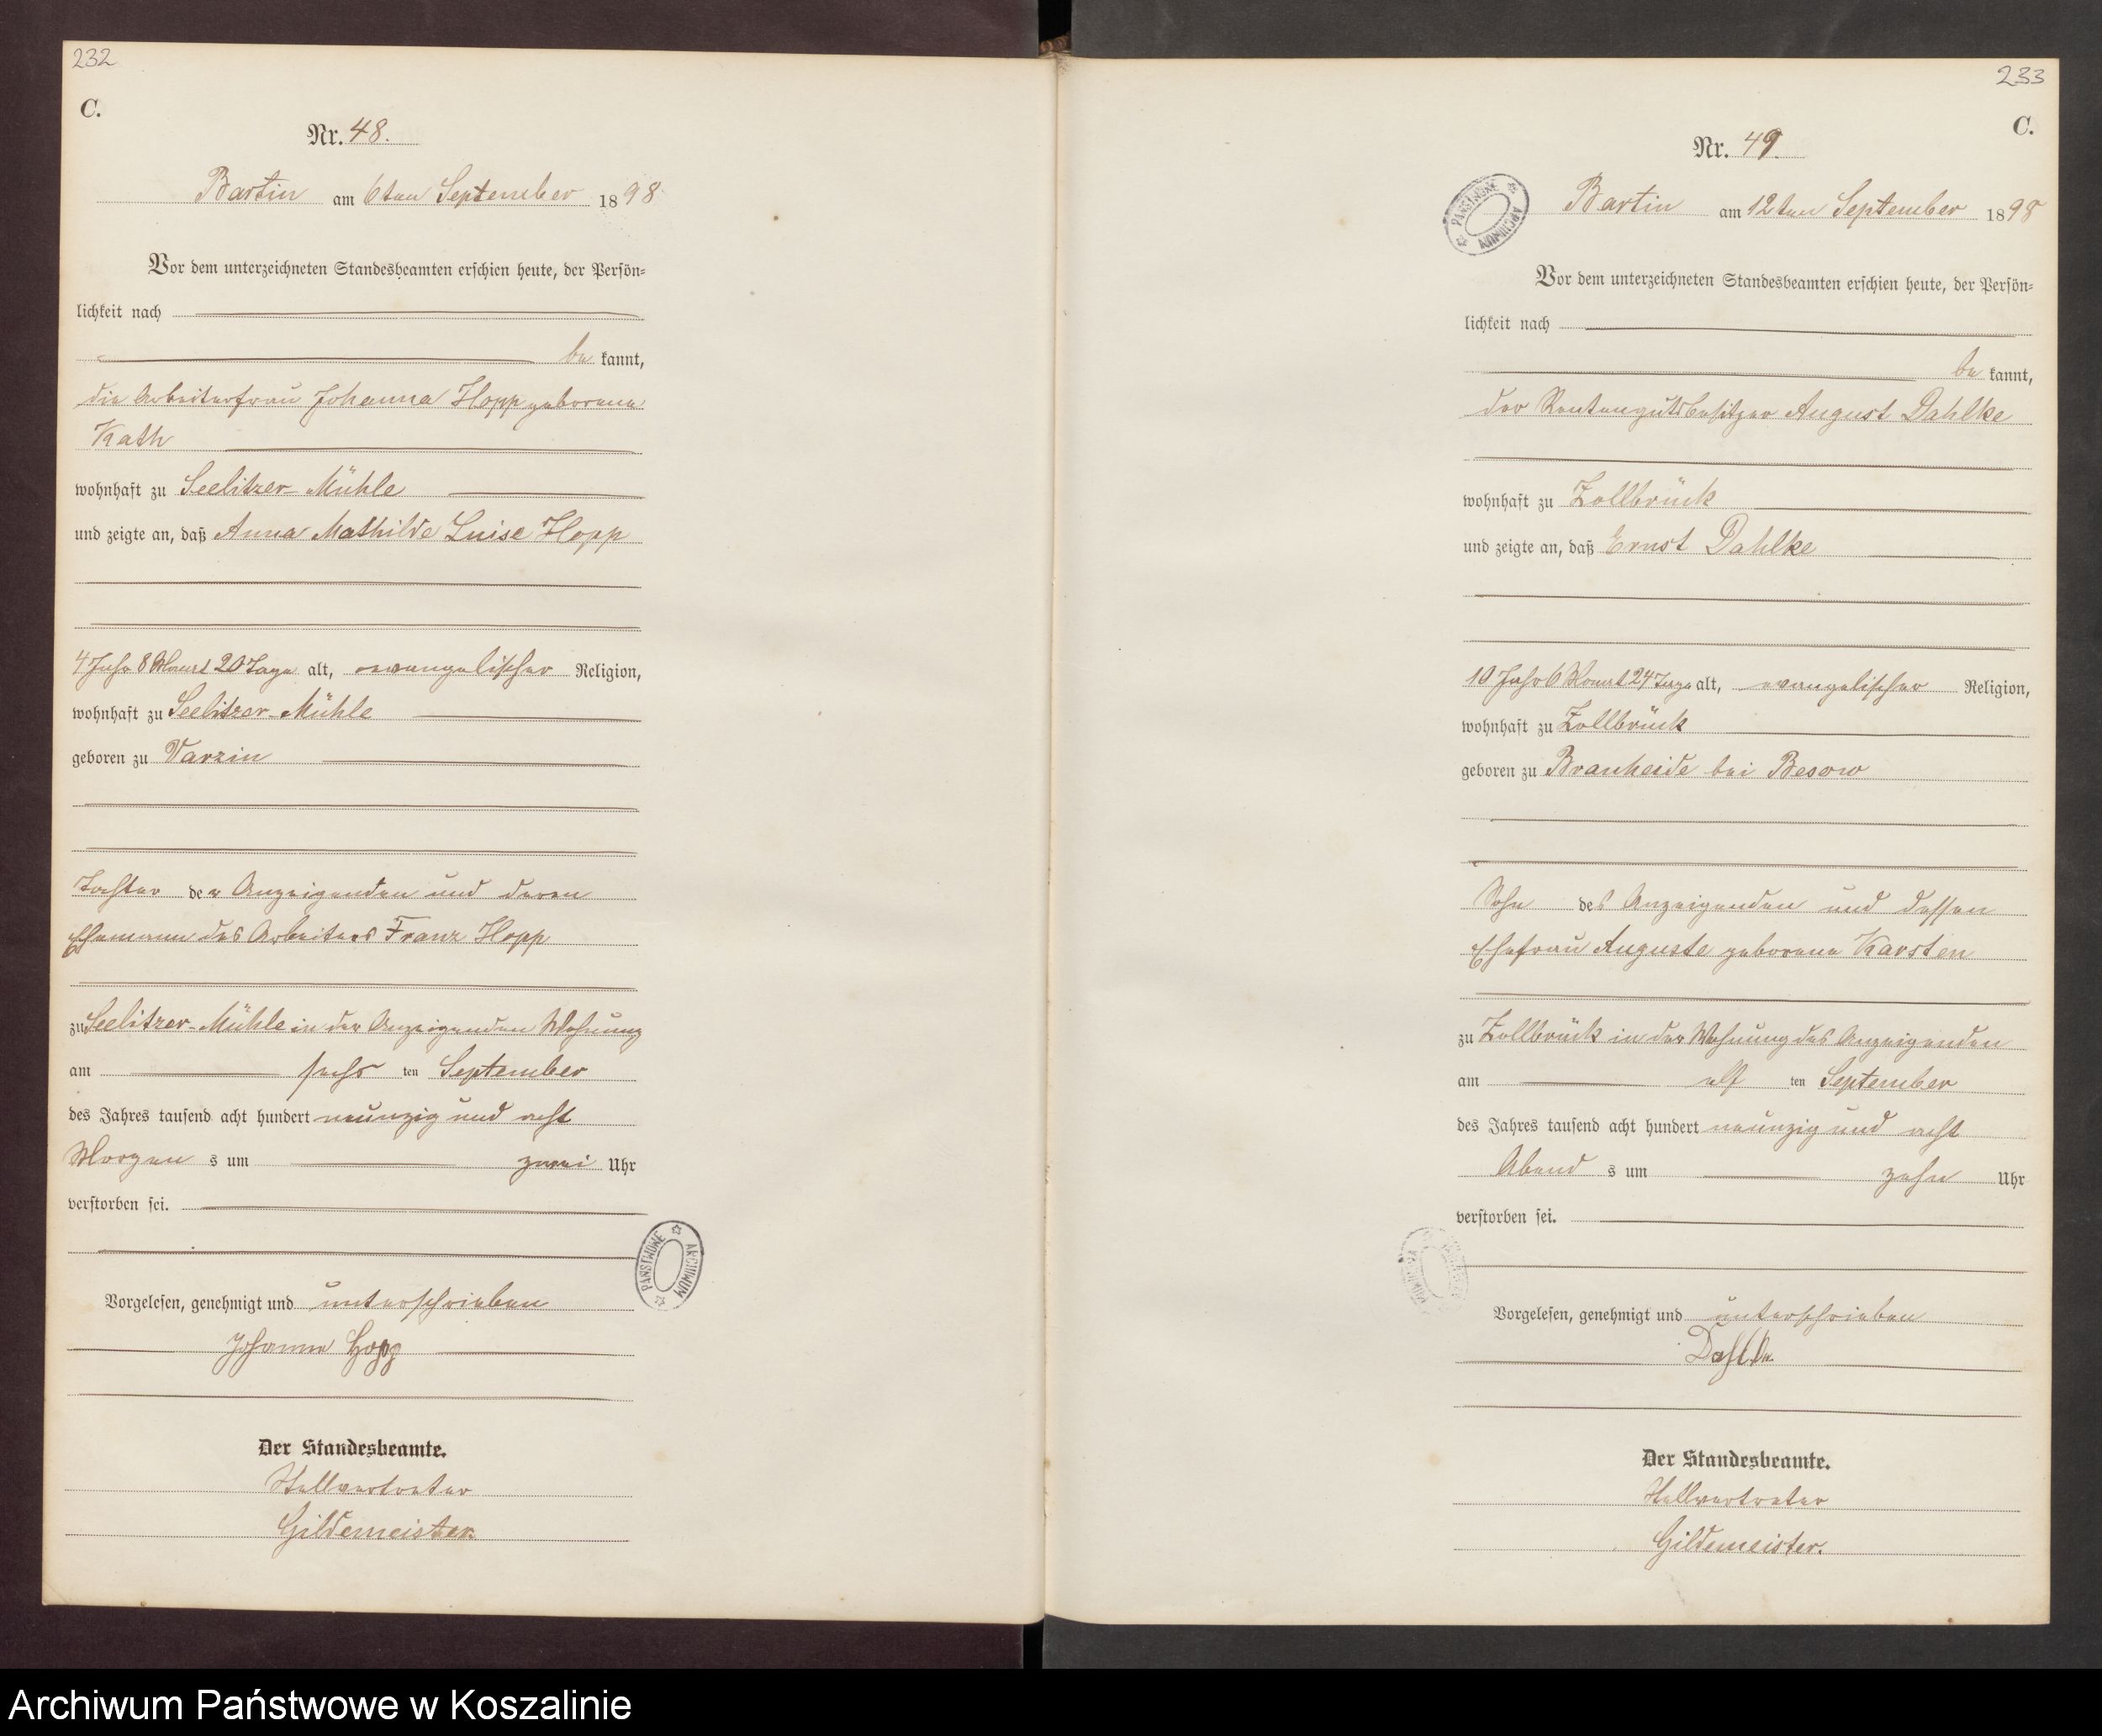 232
C.
Nr. 48.
Bartin am 6ten September 1898
Vor dem unterzeichneten Standesbeamten erschien heute, der Persön=
lichkeit nach
be kannt,
die Arbeiterfrau Johanna Hopp geborene
Kath
wohnhaft zu Seelitzer-Mühle
und zeigte an, daß Anna Mathilde Luise Hopp
4 Jahr 8 Monat 20 Tage alt, evangelischer Religion,
wohnhaft zu Seelitzer-Mühle
geboren zu Varzin
Tochter der Anzeigenden und deren
Ehemann des Arbeiters Franz Hopp
zu Seelitzer-Mühle in der Anzeigenden Wohnung
am sechs ten September
des Jahres tausend acht hundert neunzig und acht
Morgen s um zwei Uhr
verstorben sei.
Vorgelesen, genehmigt und unterschrieben
Johanna Hopp
Der Standesbeamte.
Stellvertreter
Gildemeister.
PAŃSTWOWE ARCHIWUM
233
C.
Nr. 49.
PAŃSTWOWE ARCHIWUM
Bartin am 12ten September 1898
Vor dem unterzeichneten Standesbeamten erschien heute, der Persön=
lichkeit nach
be kannt,
der Rentengutsbesitzer August Dahlke
wohnhaft zu Zollbrück
und zeigte an, daß Ernst Dahlke
10 Jahr 6 Monat 24 Tage alt, evangelischer Religion,
wohnhaft zu Zollbrück
geboren zu Branheide bei Besow
Sohn des Anzeigenden und dessen
Ehefrau Auguste geborene Karsten
zu Zollbrück in der Wohnung des Anzeigenden
am elf ten September
des Jahres tausend acht hundert neunzig und acht
Abend s um zehn Uhr
verstorben sei.
Vorgelesen, genehmigt und unterschrieben
Dahlke
Der Standesbeamte.
Stellvertreter
Gildemeister.
Archiwum Państwowe w Koszalinie